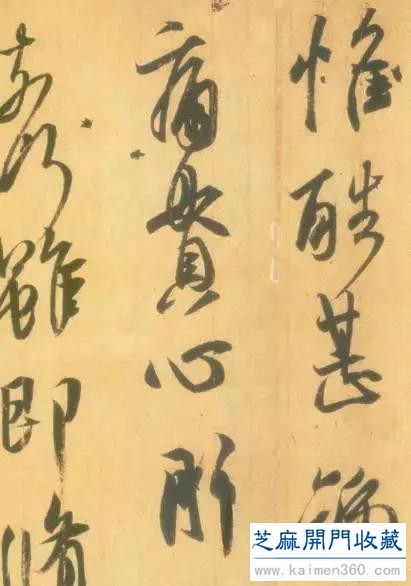 惟酷甚號
痛貫心肝
奈何雖即脩
芝麻開門收藏
www.kaimen360.com